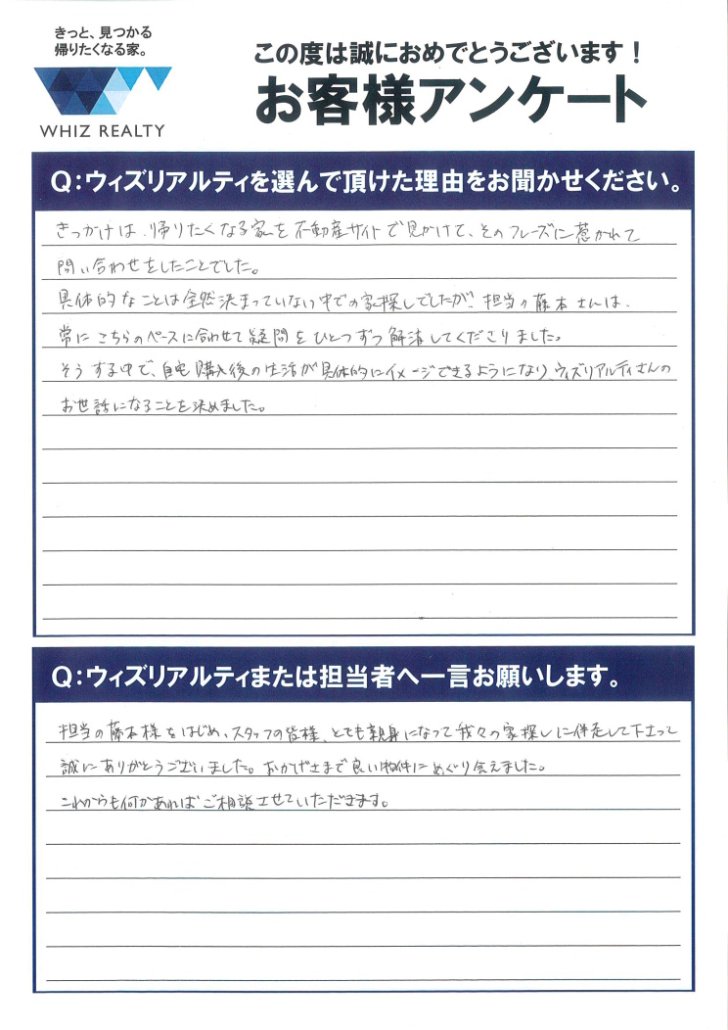 きっと、見つかる
帰りたくなる家。
WHIZ REALTY
この度は誠におめでとうございます！
お客様アンケート
Q：ウィズリアルティを選んで頂けた理由をお聞かせください。
きっかけは、帰りたくなる家を不動産サイトで見かけて、そのフレーズに惹かれて
問い合わせをしたことでした。
具体的なことは全然決まっていない中での家探しでしたが、担当の藤本さんは、
常にこちらのペースに合わせて疑問をひとつずつ解消してくださりました。
そうする中で、自宅購入後の生活が具体的にイメージできるようになり、ウィズリアルティさんの
お世話になることを決めました。
Q：ウィズリアルティまたは担当者へ一言お願いします。
担当の藤本様をはじめ、スタッフの皆様、とても親身になって我々の家探しに伴走して下さって
誠にありがとうございました。おかげさまで良い物件にめぐり会えました。
これからも何かあればご相談させていただきます。